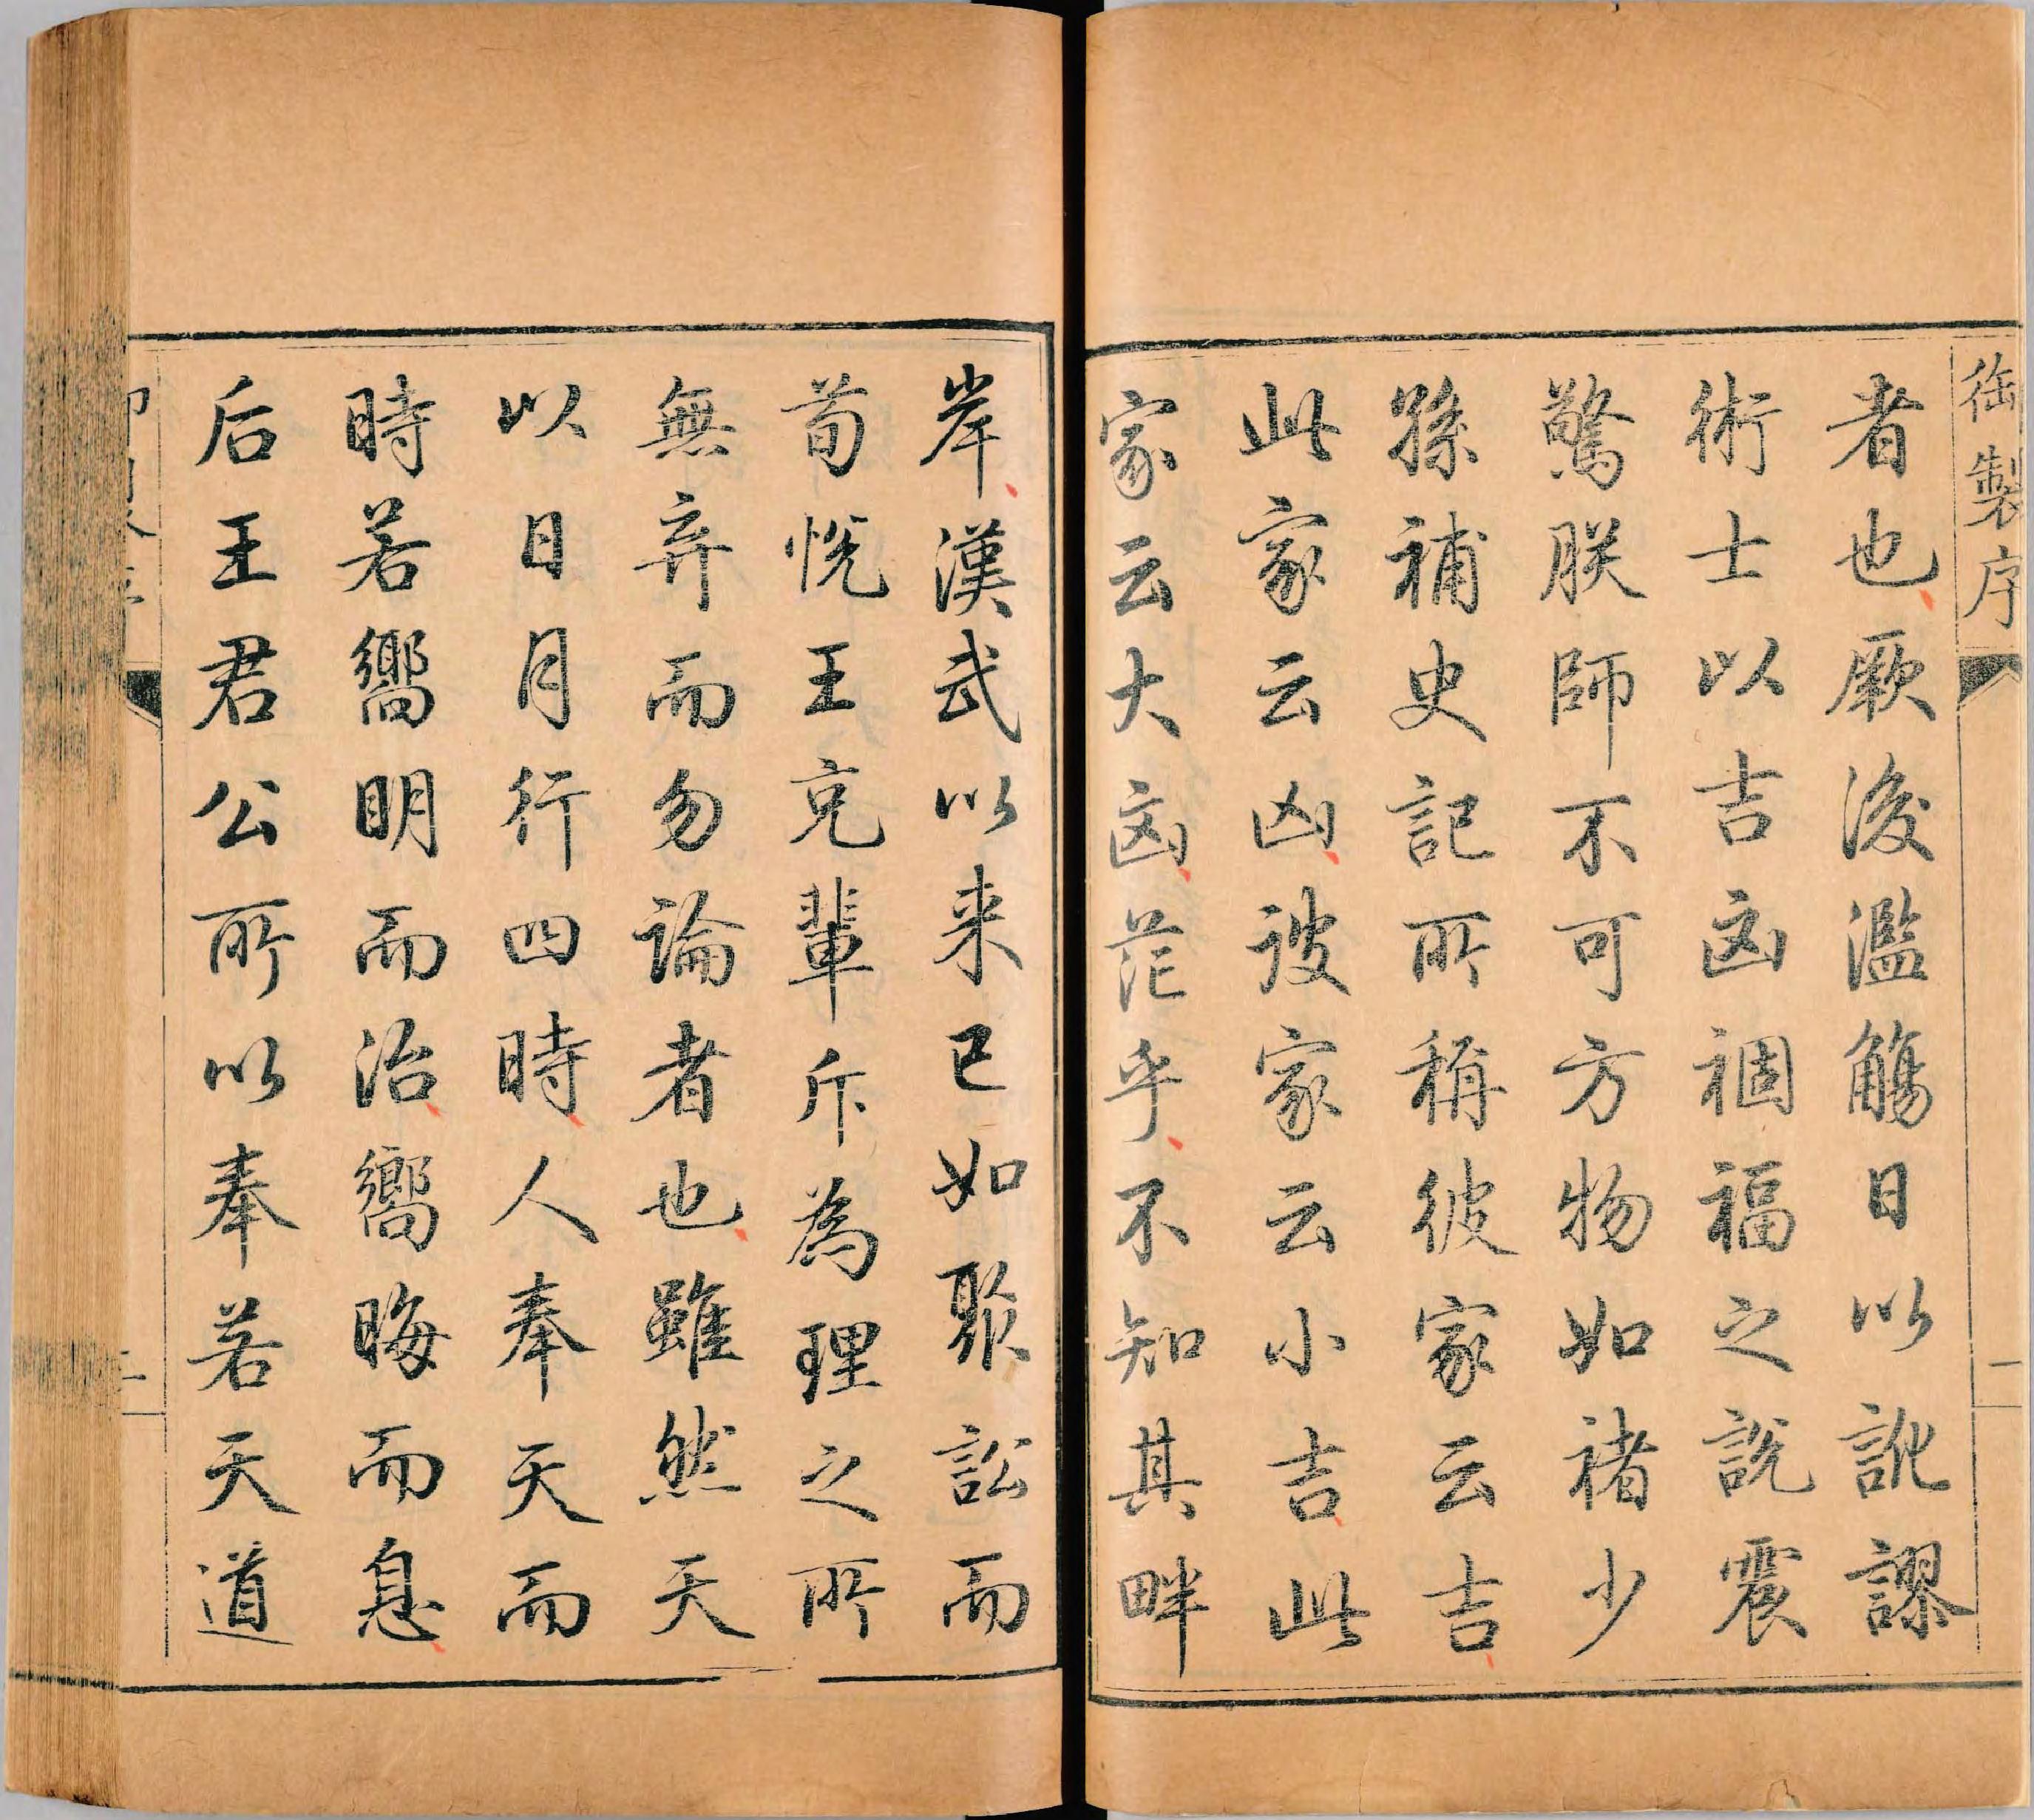 御製序
一
者也厥後濫觴日以訛謬
術士以吉凶禍福之說震
驚朕師不可方物如褚少
孫補史記所稱彼家云吉
此家云凶彼家云小吉此
家云大凶茫乎不知其畔
岸漢武以来已如聚訟而
荀悅王充輩斥為理之所
無弃而勿論者也雖然天
以日月行四時人奉天而
時若嚮明而治嚮晦而息
后王君公所以奉若天道